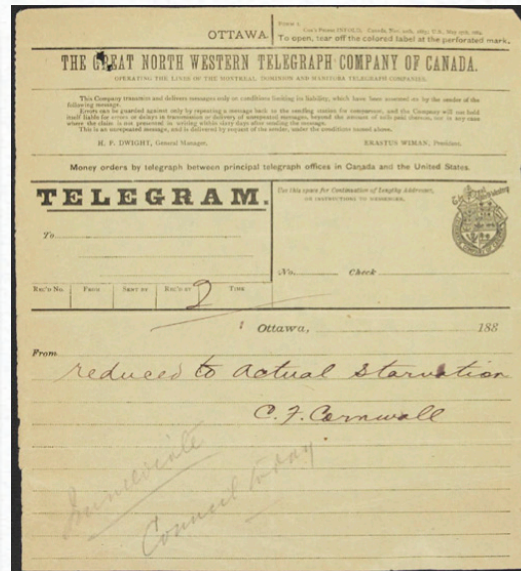 OTTAWA.
FORM 1.
To open, tear off the colored label at the perforated mark.
THE GREAT NORTH WESTERN TELEGRAPH COMPANY OF CANADA.
OPERATING THE LINES OF THE MONTREAL, DOMINION AND MANITOBA TELEGRAPH COMPANIES.
This Company transmits and delivers messages only on conditions limiting its liability, which have been assented to by the sender of the
following message.
Errors can be guarded against only by repeating a message back to the sending station for comparison, and the Company will not hold
itself liable for errors or delays in transmission or delivery of unrepeated messages, beyond the amount of tolls paid thereon, nor in any case
where the claim is not presented in writing within sixty days after sending the message.
This is an unrepeated message, and is delivered by request of the sender, under the conditions named above.
H. P. DWIGHT, General Manager.
ERASTUS WIMAN, President.
Money orders by telegraph between principal telegraph offices in Canada and the United States.
TELEGRAM.
Use this space for Continuation of Lengthy Addresses,
OR INSTRUCTIONS TO MESSENGER.
To
No. Check
REC'D No. FROM SENT BY REC'D BY TIME
2
Ottawa, 188
From
reduced to actual starvation
C. F. Cornwall
Immediate
Council today